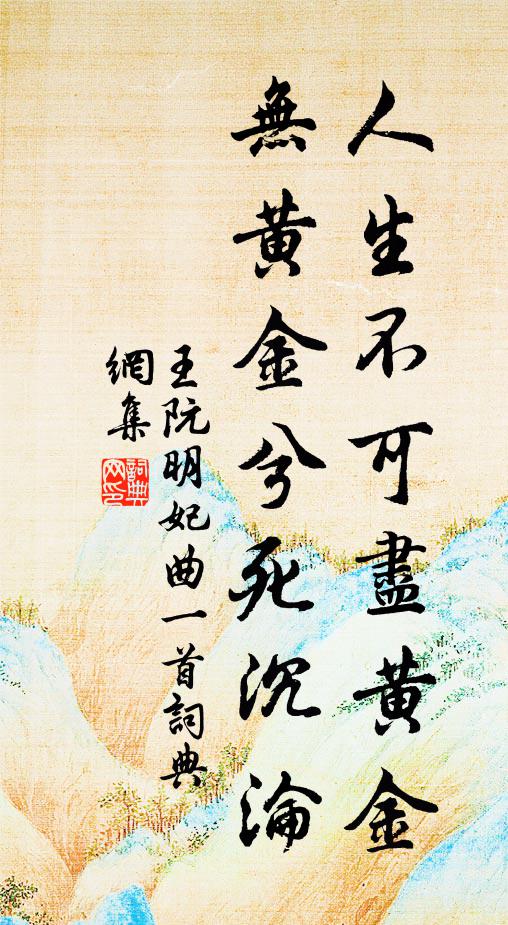 人生不可盡黃金
無黃金兮死沉淪
王阮明妃曲一首詞典
網集
詞典
网印